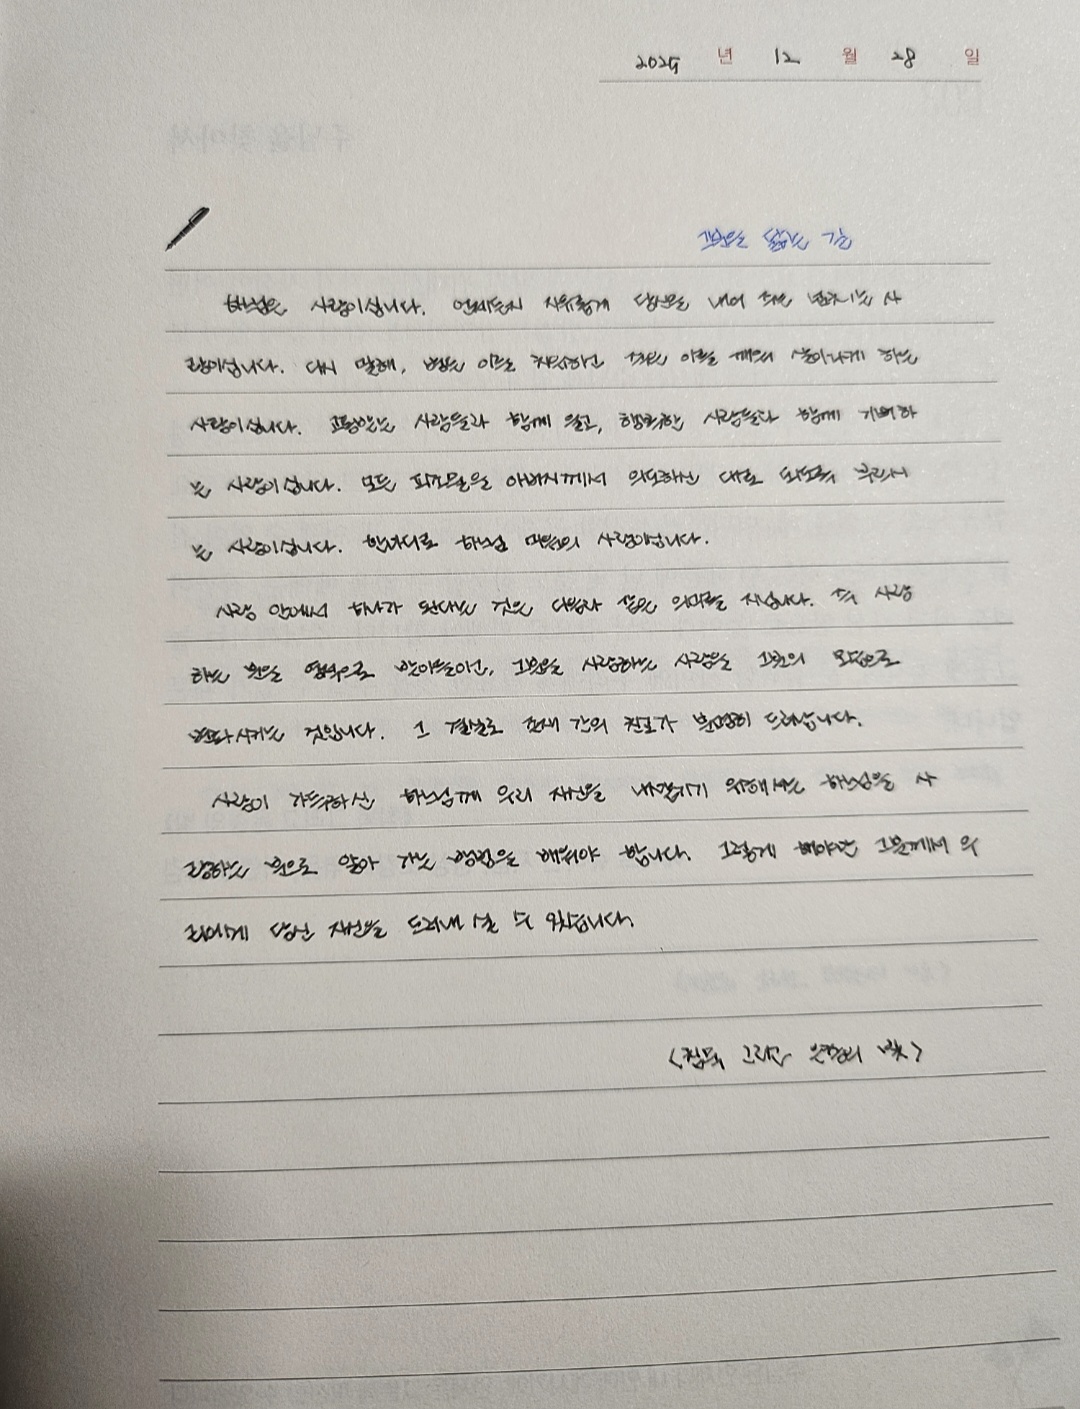 2025 년 12 월 28 일
그분을 닮는 길
하느님은 사랑이십니다. 언제든지 자유롭게 당신을 내어 주는 넘치는 사
랑이십니다. 다시 말해, 병든 이를 치유하고 죽은 이를 깨워 살아나게 하는
사랑이십니다. 고통받는 사람들과 함께 울고, 행복한 사람들과 함께 기뻐하
는 사랑이십니다. 모든 피조물을 아버지께서 의도하신 대로 되도록 부르시
는 사랑이십니다. 한마디로 하느님 마음의 사랑이십니다.
사랑 안에서 하나가 된다는 것은 다음과 같은 의미를 지닙니다. 즉 사랑
하는 분을 영적으로 받아들이고, 그분을 사랑하는 사람을 그분의 모습으로
변화시키는 것입니다. 그 결실로 존재 간의 친교가 분명히 드러납니다.
사랑이 가득하신 하느님께 우리 자신을 내맡기기 위해서는 하느님을 사
랑하는 분으로 알아 가는 방법을 배워야 합니다. 그렇게 해야만 그분께서 우
리에게 당신 자신을 드러내 실 수 있습니다.
<침묵 그리고 은총의 빛>